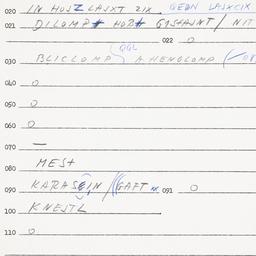 020 IN HOJZ LAJXT ZIX GEBN LAJXCIX
021 DILOMP HOZT GJSHAJNT / NIT
022 0
QGL
030 BLICLOMP A HENGLOMP
040 0
050 0
060 0
070 —
080 MEST
090 KARASEIN / GAFT 091 0
100 KNEJTL
110 0